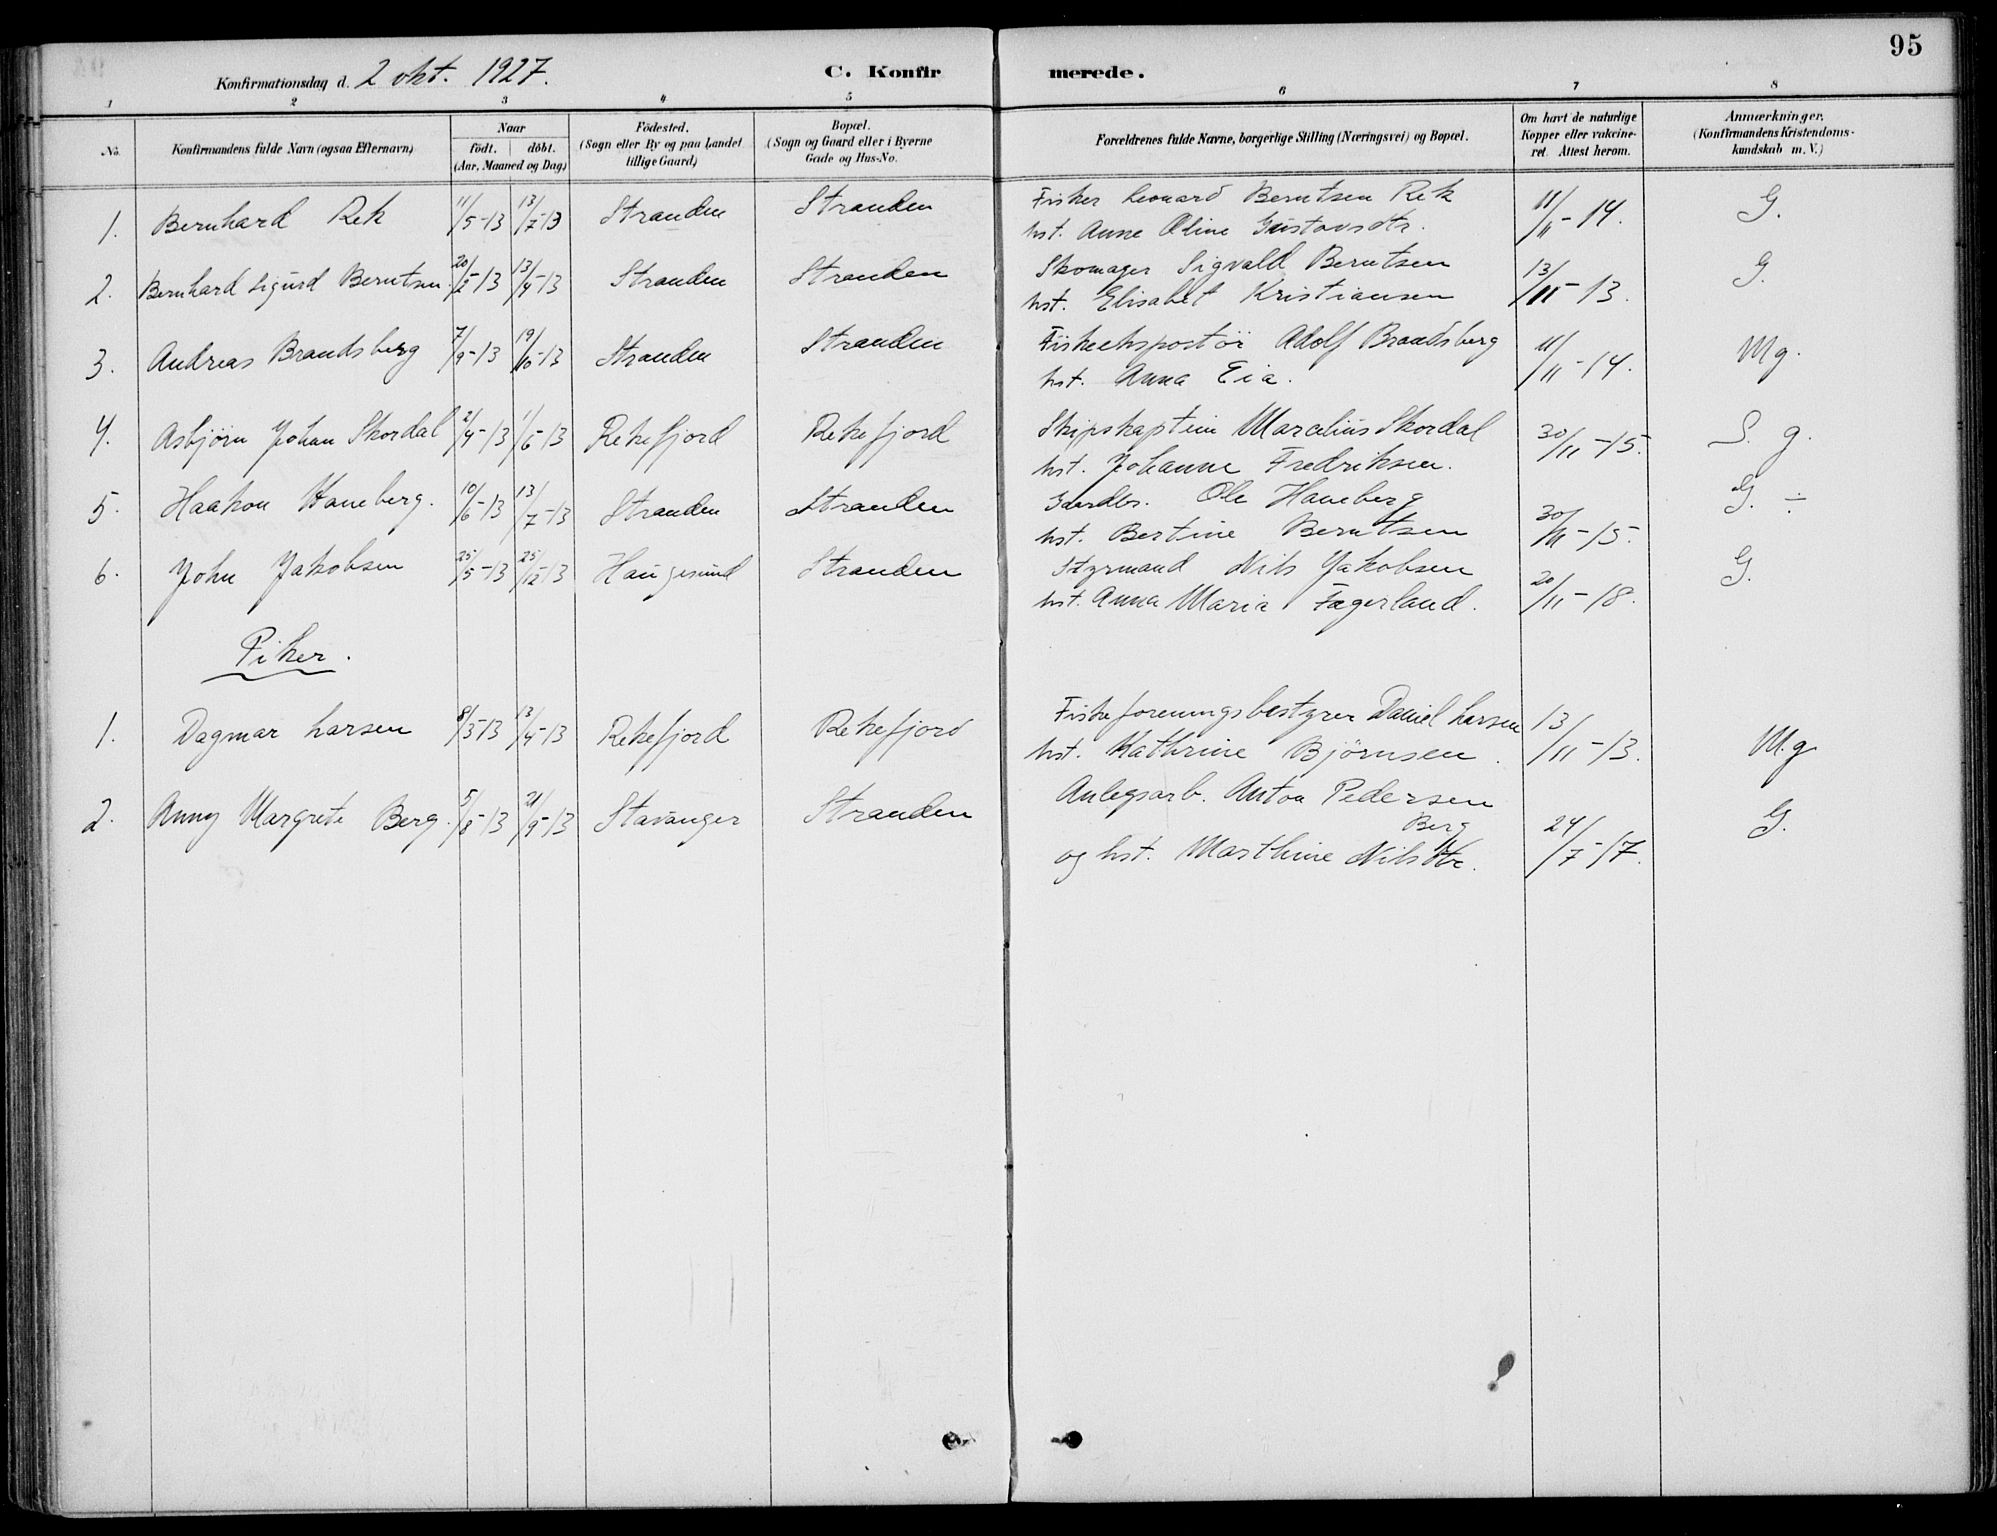 95
Konfirmationsdag d. 2 okt. 1927.
C. Konfirmerede.
1 2 3 4 5 6 7 8
No. Konfirmandens fulde Navn (ogsaa Efternavn) Naar født. døbt. (Aar, Maaned og Dag) Födested. (Sogn eller By og paa Landet tillige Gaard) Bopæl. (Sogn og Gaard eller i Byerne Gade og Hus-No. Forældrenes fulde Navne, borgerlige Stilling (Næringsvei) og Bopæl. Om havt de naturlige Kopper eller vakcineret. Attest herom. Anmærkninger. (Konfirmandens Kristendomskundskab m. V.)
1. Bernhard Rek 11/5-13 13/7-13 Stranden Stranden Fisker Leonard Berntsen Rek 11/11-14. G.
hst. Anne Oline Gustavsdtr.
2. Bernhard Sigurd Berntsen. 20/2-13 13/4-13 Stranden Stranden Skomager Sigvald Berntsen 13/11-13. G.
hst. Elisabet Kristiansen
3. Andreas Brandsberg 7/9-13 19/10-13 Stranden Stranden Fiskeekspostör Adolf Brandsberg 11/11-14. Mg.
hst. Anna Eia.
4. Asbjörn Johan Skordal 2/4-13 1/6-13 Rekefjord Rekefjord Skipskaptein Marcelius Skordal 30/11-15. S. g.
hst. Johanne Fredriksen.
5. Haakon Haneberg. 10/6-13 13/7-13 Stranden Stranden Gaardbr. Ole Haneberg 30/11-15. G. ÷
hst. Bertine Berntsen
6. John Jakobsen 25/5-13 25/12-13 Haugesund Stranden Styrmand Nils Jakobsen 20/11-18. G.
hst. Anna Maria Fagerland.
Piker.
1. Dagmar Larsen 8/3-13 13/4-13 Rekefjord Rekefjord Fiskeforeningsbestyrer Daniel Larsen 13/11-13. M.g
hst. Kathrine Björnsen.
2. Anny Margrete Berg. 5/8-13 21/9-13 Stavanger Stranden Anlegsarb. Anton Pedersen Berg 24/7-17. G.
og hst. Marthine Nilsdtr.